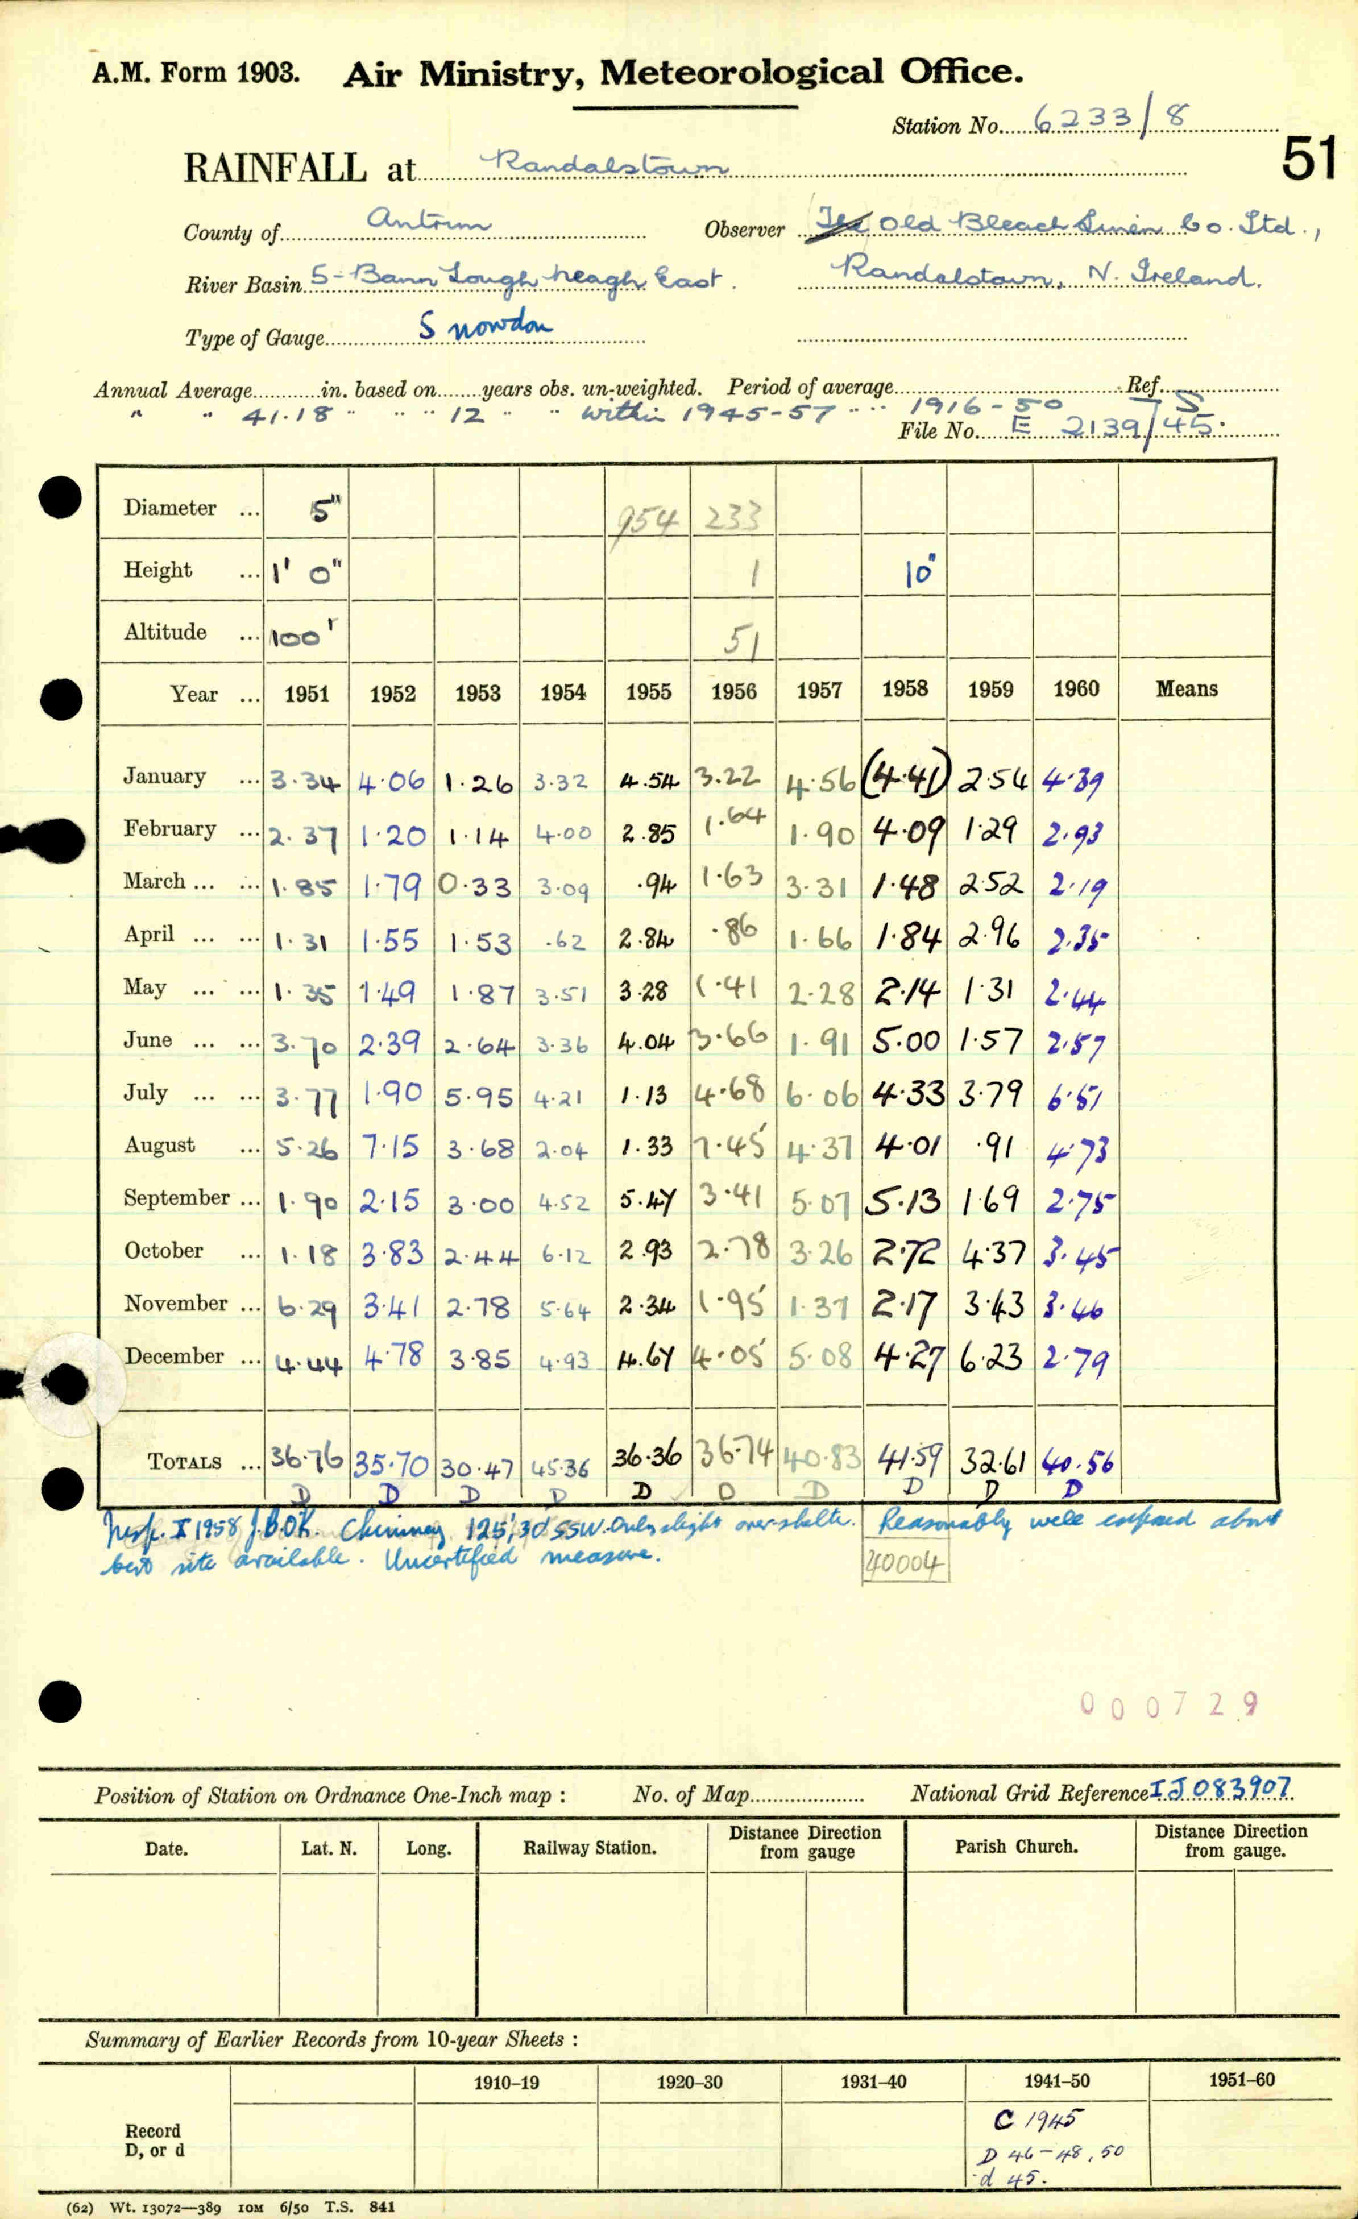 A.M. Form 1903. Air Ministry, Meteorological Office.
Station No. 6233/8
51
RAINFALL at Randalstown
County of Antrim Observer The Old Bleach Linen Co. Ltd.,
River Basin 5-Bann Lough Neagh East. Randalstown, N. Ireland.
Type of Gauge Snowdon
Annual Average in. based on years obs. un-weighted. Period of average Ref.
" " 41.18 " " " 12 " " within 1945-57 " " 1916-50 TS
File No. E 2139/45.
Diameter ... 5" 954 233
Height ... 1' 0" 1 10"
Altitude ... 100' 51
Year ... 1951 1952 1953 1954 1955 1956 1957 1958 1959 1960 Means
January ... 3.34 4.06 1.26 3.32 4.54 3.22 4.56 (4.41) 2.54 4.39
February ... 2.37 1.20 1.14 4.00 2.85 1.64 1.90 4.09 1.29 2.93
March ... ... 1.85 1.79 0.33 3.09 .94 1.63 3.31 1.48 2.52 2.19
April ... ... 1.31 1.55 1.53 .62 2.84 .86 1.66 1.84 2.96 2.35
May ... ... 1.35 1.49 1.87 3.51 3.28 1.41 2.28 2.14 1.31 2.44
June ... ... 3.70 2.39 2.64 3.36 4.04 3.66 1.91 5.00 1.57 2.57
July ... ... 3.77 1.90 5.95 4.21 1.13 4.68 6.06 4.33 3.79 6.51
August ... 5.26 7.15 3.68 2.04 1.33 7.45 4.37 4.01 .91 4.73
September ... 1.90 2.15 3.00 4.52 5.47 3.41 5.07 5.13 1.69 2.75
October ... 1.18 3.83 2.44 6.12 2.93 2.78 3.26 2.72 4.37 3.45
November ... 6.29 3.41 2.78 5.64 2.34 1.95 1.37 2.17 3.43 3.46
December ... 4.44 4.78 3.85 4.93 4.67 4.05 5.08 4.27 6.23 2.79
TOTALS ... 36.76 35.70 30.47 45.36 36.36 36.74 40.83 41.59 32.61 40.56
D D D D D D D D D D
Insp. X 1958 J.B.O'K. Chimney 125', 30' SSW. Only slight over-shelter. Reasonably well exposed about
best site available. Uncertified measure.
40004
000729
Position of Station on Ordnance One-Inch map : No. of Map National Grid Reference IJ 083907
Date. Lat. N. Long. Railway Station. Distance Direction from gauge Parish Church. Distance Direction from gauge.
Summary of Earlier Records from 10-year Sheets :
1910–19 1920–30 1931–40 1941–50 1951–60
Record
D, or d
C 1945
D 46-48, 50
d 45.
(62) Wt. 13072—389 10M 6/50 T.S. 841